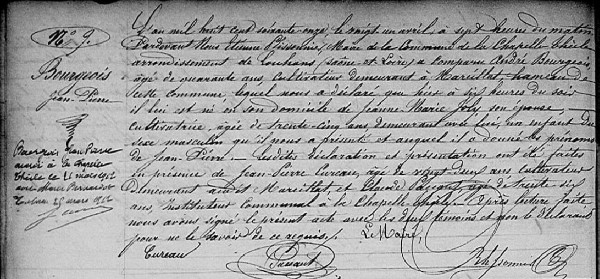 N° 9.
Bourgeois
Jean Pierre
L'an mil huit cent soixante onze, le vingt un avril, à sept heures du matin
Pardevant Nous Etienne Plissonnier, Maire de la Commune de la Chapelle Thècle
arrondissement de Louhans (Saône et Loire) a comparu André Bourgeois
âgé de quarante ans, Cultivateur demeurant à hameau de
cette commune lequel nous a déclaré que hier à six heures du soir
il lui est né en son domicile de Jeanne Marie Joly son épouse
Cultivatrice, âgée de trente cinq ans demeurant avec lui, un enfant du
sexe masculin qu'il nous a présenté et auquel il a donné les prénoms
de Jean Pierre. Lesdites déclaration et présentation ont été faites
en présence de Jean Pierre Cureau, âgé de vingt deux ans cultivateur
demeurant audit et Claude âgé de trente six
ans, Instituteur Communal à la Chapelle Thècle. Après lecture faite
nous avons signé le présent acte avec les deux témoins et non le déclarant
pour ne le savoir de ce requis.
Le Maire,
Cureau
Plissonnier
Jean Pierre
marié à la Chapelle
Thècle le 11 mars
avec
mars